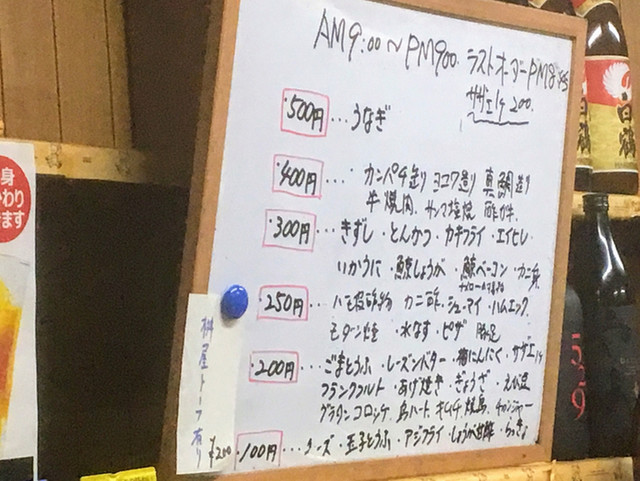 AM9:00～PM9:00 ラストオーダーPM8:45
サザエ1ケ 200.
500円…うなぎ
400円…カンパチ造り ヨコワ造り 真鯛造り
牛焼肉 サンマ塩焼 酢カキ
300円…きずし・とんかつ・カキフライ・エイヒレ・
いかうに・鯨しょうが・鯨ベーコン・カニ身
250円…ハモ皮酢物 カニ酢・シューマイ・ハムエッグ
モダン焼・水なす・ピザ・豚足
200円…ごまとうふ・レーズンバター・梅にんにく・サザエ1ケ
フランクフルト・あげ焼き・ぎょうざ・えび豆
グラタンコロッケ 鳥ハート・キムチ 焼鳥・チャンジャー
100円…チーズ・玉子とうふ・アジフライ・しょうが甘酢・らっきょ
桝屋トーフ有り
¥200
白鶴